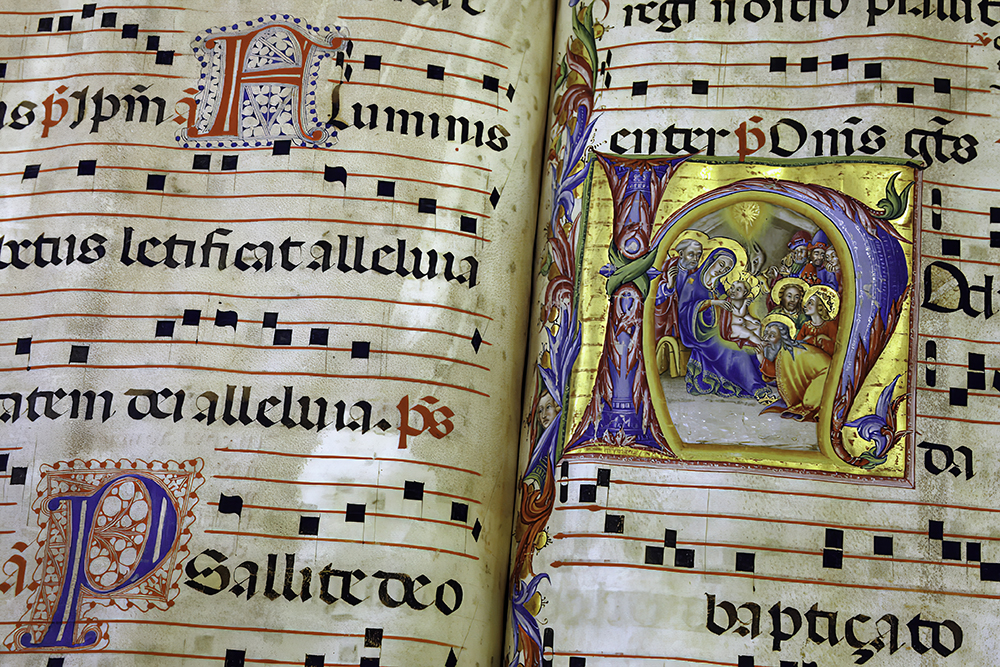 us p̄s Ip̄m ā FLuminis
etus letificat alleluia
atem dei alleluia. p̄s
ā PSallite deo
regi nostro psallit
enter p̄s Om̄s gt̄s
HOdi
da
baptiçato